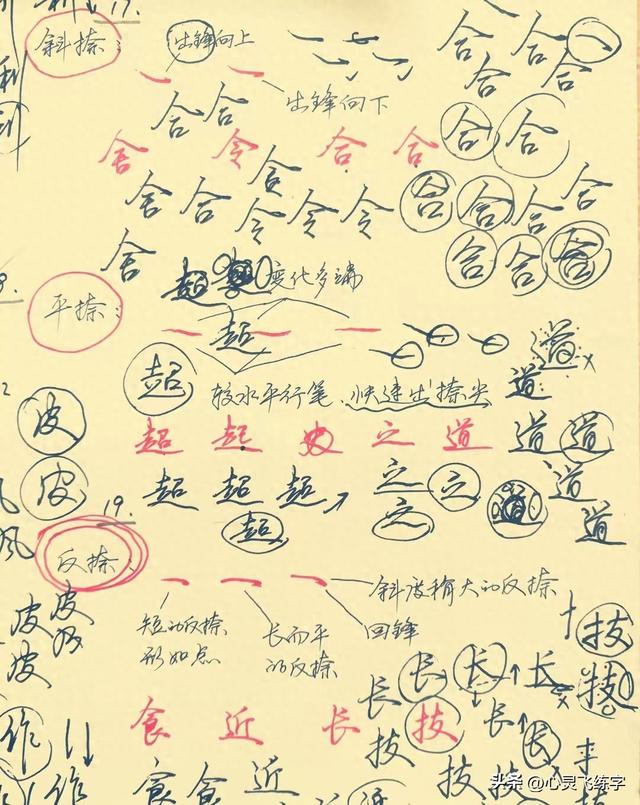 17.
斜捺: 出锋向上
出锋向下
合 合
合 合
合 合
合 合
舍 令 合 合
食
舍 合 令 令 令
合 合 合
合 合 合
舍
超 变化多端
平捺:
超
道
超 较水平行笔、快速出捺尖
道
皮
超 起 史 之 道 道 道
皮
超 超 超 之 之 道 道
超 之 道
19.
反捺:
斜度稍大的反捺
短的反捺 长而平 回锋
形如点 的反捺
皮 皮
皮
技
长 长 长 长
技
食 近 长 技
长 长
作
技
作
食 食 近
技 技 技
头条 @心灵飞练字